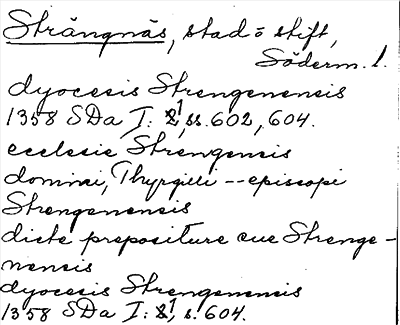 Strängnäs, stad = stift,
Söderm. l.
dyocesis Strengenensis
1358 SDa I: 1, ss. 602, 604.
ecclesie Strengensis
domini, Thyrgilli -- episcopi
Strengenensis
dicte prepositure cue Strenge-
nensis
dyocesis Strengenensis
1358 SDa I: 1, s. 604.